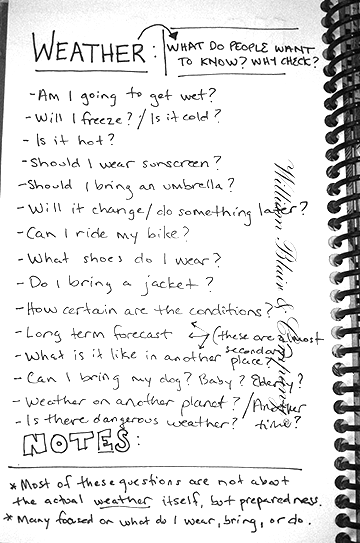 WEATHER: WHAT DO PEOPLE WANT
TO KNOW? WHY CHECK?
- Am I going to get wet?
- Will I freeze? / Is it cold?
- Is it hot?
- Should I wear sunscreen?
- Should I bring an umbrella?
- Will it change / do something later?
- Can I ride my bike?
- What shoes do I wear?
- Do I bring a jacket?
- How certain are the conditions?
- Long term forecast (these are almost
secondary
- What is it like in another place?
- Can I bring my dog? Baby? Elderly?
- Weather on another planet? / Another
time?
- Is there dangerous weather?
NOTES:
* Most of these questions are not about
the actual weather itself, but preparedness.
* Many focused on what do I wear, bring, or do.
William Blair &